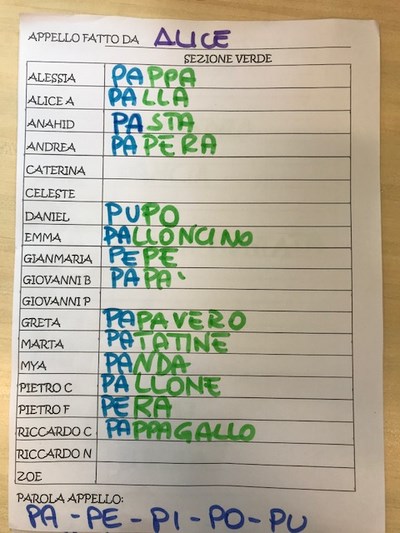 APPELLO FATTO DA ALICE
SEZIONE VERDE
ALESSIA PAPPA
ALICE A PALLA
ANAHID PASTA
ANDREA PAPERA
CATERINA
CELESTE
DANIEL PUPO
EMMA PALLONCINO
GIANMARIA PEPE
GIOVANNI B PAPA'
GIOVANNI P
GRETA PAPAVERO
MARTA PATATINE
MYA PANDA
PIETRO C PALLONE
PIETRO F PERA
RICCARDO C PAPPAGALLO
RICCARDO N
ZOE
PAROLA APPELLO:
PA - PE - PI - PO - PU